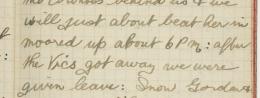 the Cowboys behind us & we
will just about beat her in
moored up about 6 P.m; after
the Vics got away we were
given leave: Snow Gordan &